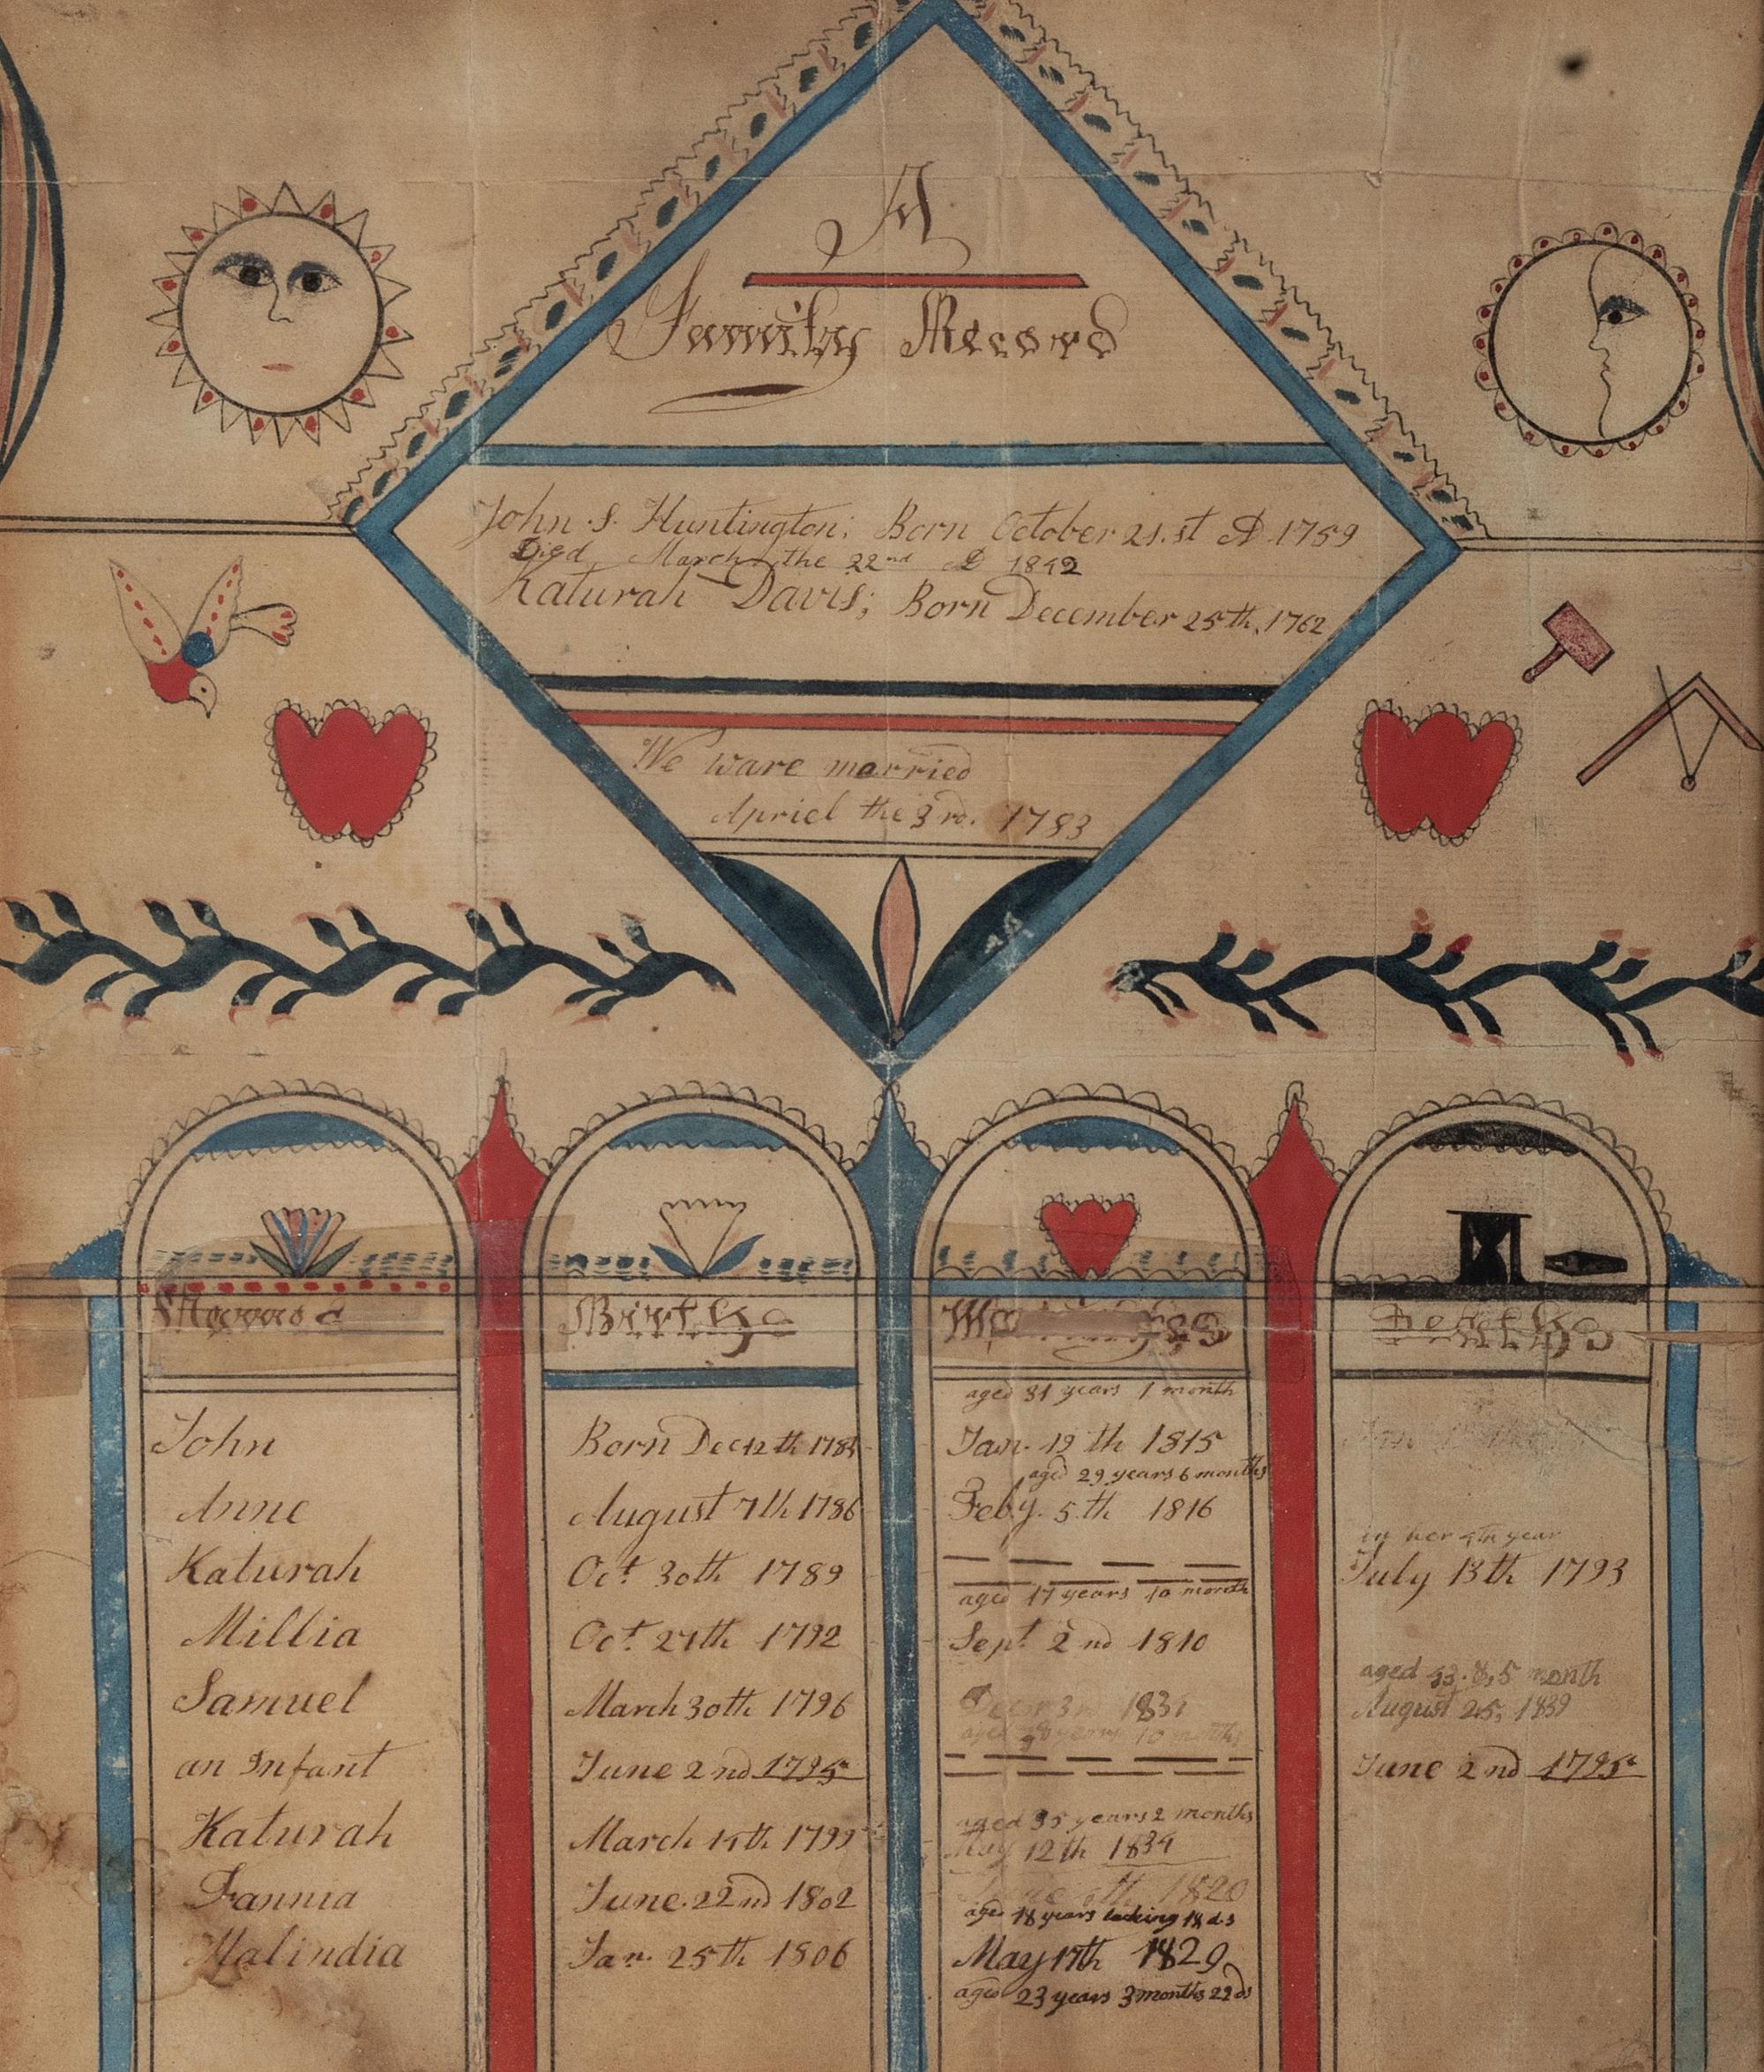 A
Family Record
John S. Huntington; Born October 21.st AD 1759
Died March the 22nd AD 1842
Katurah Davis; Born December 25th, 1762
We ware married
Apriel the 3rd. 1783
Births
Deaths
aged 31 years 1 month
John Born Dec 12th Jan. 19th 1815
aged 29 years 6 months
Anne August 7th 1786 Feby. 5.th 1816
in her 4th year
Katurah Oct. 30th 1789 July 13th 1793
aged 17 years 10 month
Millia Oct. 27th 1792 Sept. 2nd 1810
aged month
Samuel March 30th 1796 August 25, 1839
aged years 10 months
an Infant June 2nd 1795 June 2nd 1795
aged 35 years 2 months
Katurah March 14th 1799 May 12th 1834
Fannia June 22nd 1802 1820
aged 18 years lacking 18 ds
Malindia Jan. 25th 1806 May 17th 1829
aged 23 years 3 months 22 ds